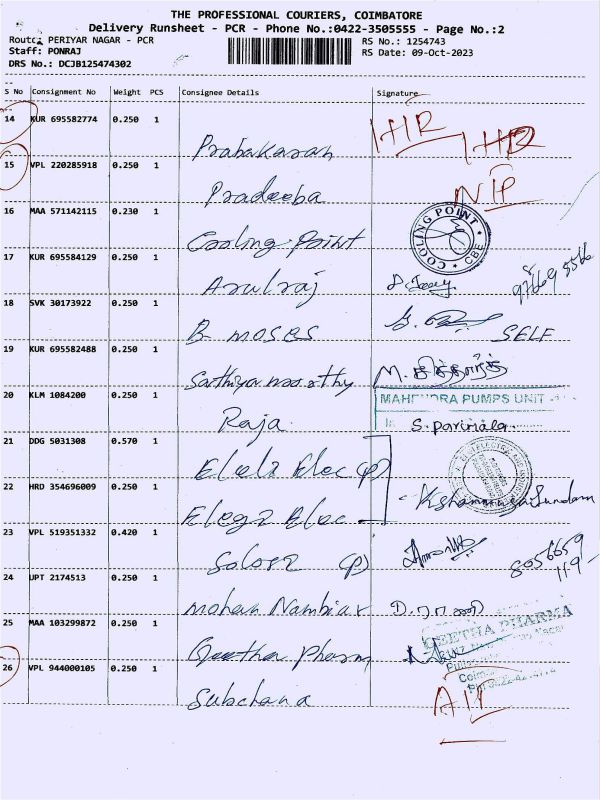 THE PROFESSIONAL COURIERS, COIMBATORE
Delivery Runsheet - PCR - Phone No.:0422-3505555 - Page No.:2
Route: PERIYAR NAGAR - PCR
RS No.: 1254743
Staff: PONRAJ
RS Date: 09-Oct-2023
DRS No.: DCJB125474302
S No Consignment No Weight PCS Consignee Details Signature
14 KUR 695582774 0.250 1
Prabakaran
15 VPL 220285918 0.250 1
Pradeeba
16 MAA 571142115 0.230 1
Cooling Point COOLING POINT CBE
17 KUR 695584129 0.250 1
Arulraj
18 SVK 30173922 0.250 1
B moses SELF
19 KUR 695582488 0.250 1
Sathiyamoorthy M.சித்தார்த்
20 KLM 1084200 0.250 1 MAHENDRA PUMPS UNIT
Raja S.parimala
21 DDG 5031308 0.570 1
Elec (P)
22 HRD 354696009 0.250 1
Elec
23 VPL 519351332 0.420 1
(P) 8056659
119
24 UPT 2174513 0.250 1
mohan Nambiar
25 MAA 103299872 0.250 1 GEETHA PHARMA
Geetha Pharm
26 VPL 944000105 0.250 1
Subchana